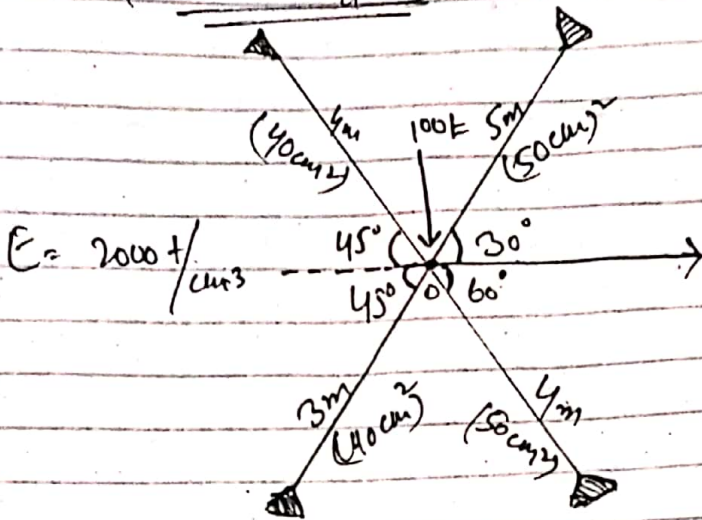 4m
(40cm2)
100t
5m
(50cm)2
E= 2000 t/cm3
45°
30°
45°
0
60°
3m
(40cm2)
4m
(50cm2)